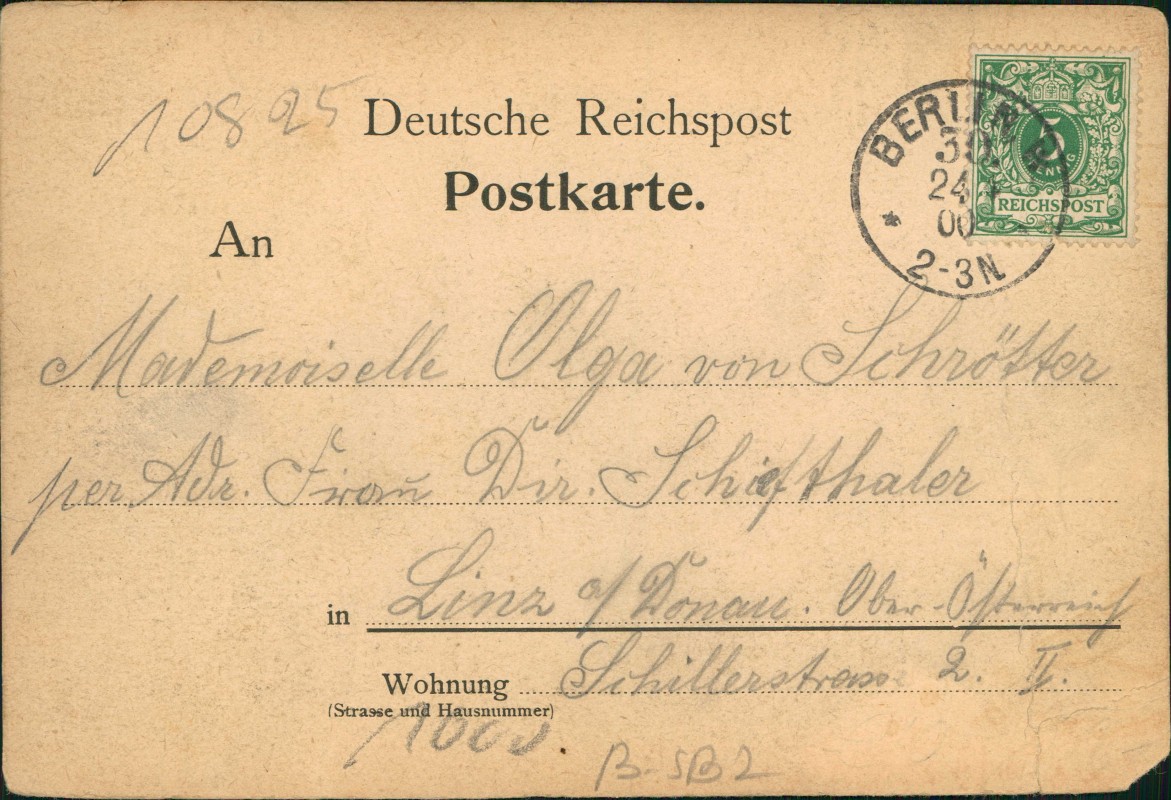 10825
Deutsche Reichspost
Postkarte.
BERLIN
39.
24 4
00
2-3N
5
PFENNIG
REICHSPOST
An
Mademoiselle Olga von Schrötter
per Adr. Frau Dir. Schiefthaler
in Linz a/Donau. Ober-Österreich
Wohnung Schillerstrasse 2. II.
(Strasse und Hausnummer)
1000
B-SB2